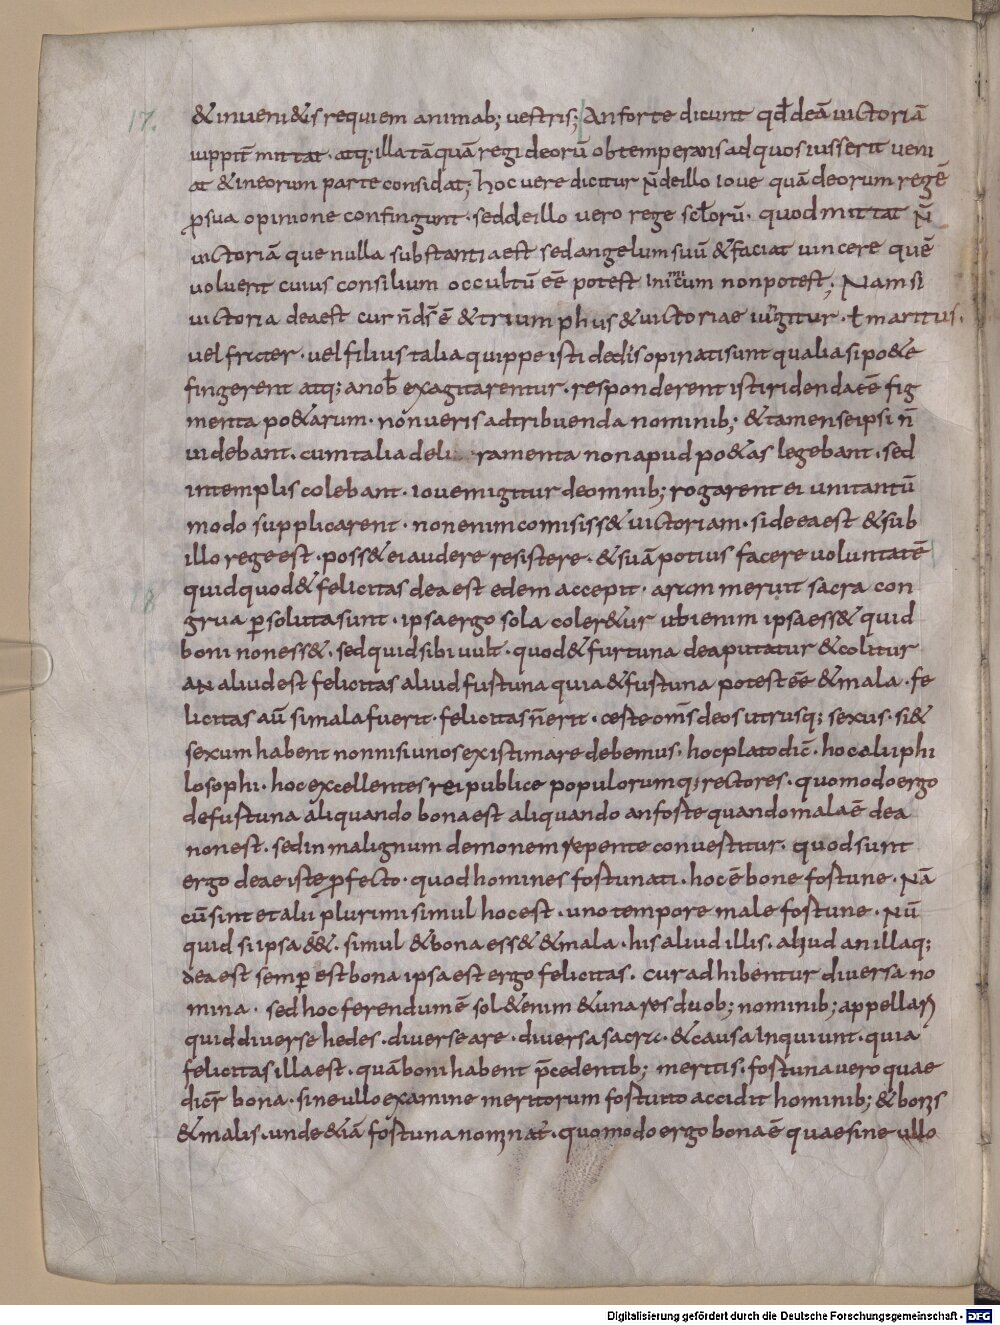 17.
& inueni&is requiem animab; uestris; An forte dicunt qđ deā uictoriā
iuppiť mittat. atq; illa tāquā regi deorū obtemperans ad quos iusserit ueni
at & in eorum parte considat; hoc uere dicitur ñ de illo ioue quā deorum regē
ꝑ sua opinione confingunt. sed de illo uero rege sclorū. quod mittat ñ
uictoriā que nulla substantia est sed angelum suū & faciat uincere quē
uoluerit cuius consilium occultū eē potest non potest; Nam si
uictoria dea est cur ñ ds ē & triumphus & uictoriae iungitur. ł maritus.
uel frater. uel filius talia quippe isti de diis opinati sunt qualia si po&e
fingerent atq; a nob exagitarentur. responderent isti ridenda eē fig
menta po&arum. non ueris adtribuenda nominib; & tamen se ipsi ñ
uidebant. cum talia deli ramenta non apud po&as legebant. sed
in templis colebant. iouem igitur de omnib; rogarent ei uni tantū
modo supplicarent. non enim comisiss& uictoriam. si dea est & sub
illo rege est. poss& ei audere resistere. & suā potius facere uoluntatē
18
quid quod & felicitas dea est edem accepit. aram meruit sacra con
grua ꝑsoluta sunt. ipsa ergo sola coler&ur ubi enim ipsa ess& quid
boni non ess&. sed quid sibi uult. quod & furtuna dea putatur & colitur
AN aliud est felicitas aliud fustuna quia & fustuna potest eē & mala. fe
licitas aū si mala fuerit. felicitas ñ erit. ceste oms deos utrusq; sexus. si &
sexum habent non nisi unos existimare debemus. hoc plato diē. hoc alii phi
losophi. hoc excellentes rei publice populorumq; rectores. quomodo ergo
de fustuna aliquando bona est aliquando an foste quando mala ē dea
non est. sed in malignum demonem repente conuestitur. quod sunt
ergo deae iste ꝑfecto. quod homines fostunati. hoc ē bone fostune. Nā
cū sint et alii plurimi simul hoc est. uno tempore male fostune. Nū
quid si ipsa ēē&. simul & bona ess& & mala. his aliud illis. aliud an illaq;
dea est semꝑ est bona ipsa est ergo felicitas. cur adhibentur diuersa no
mina. sed hoc ferendum ē sol& enim & una res duob; nominib; appellari
quid diuerse hedes. diuerse are. diuersa sacra. & causa inquiunt. quia
felicitas illa est. quā boni habent p̄cedentib; meritis. fostuna uero quae
diciť bona. sine ullo examine meritorum fostuito accidit hominib; & bonis
& malis. unde & iā fostuna nominat. quomodo ergo bona ē quae sine ullo
Digitalisierung gefördert durch die Deutsche Forschungsgemeinschaft - DFG